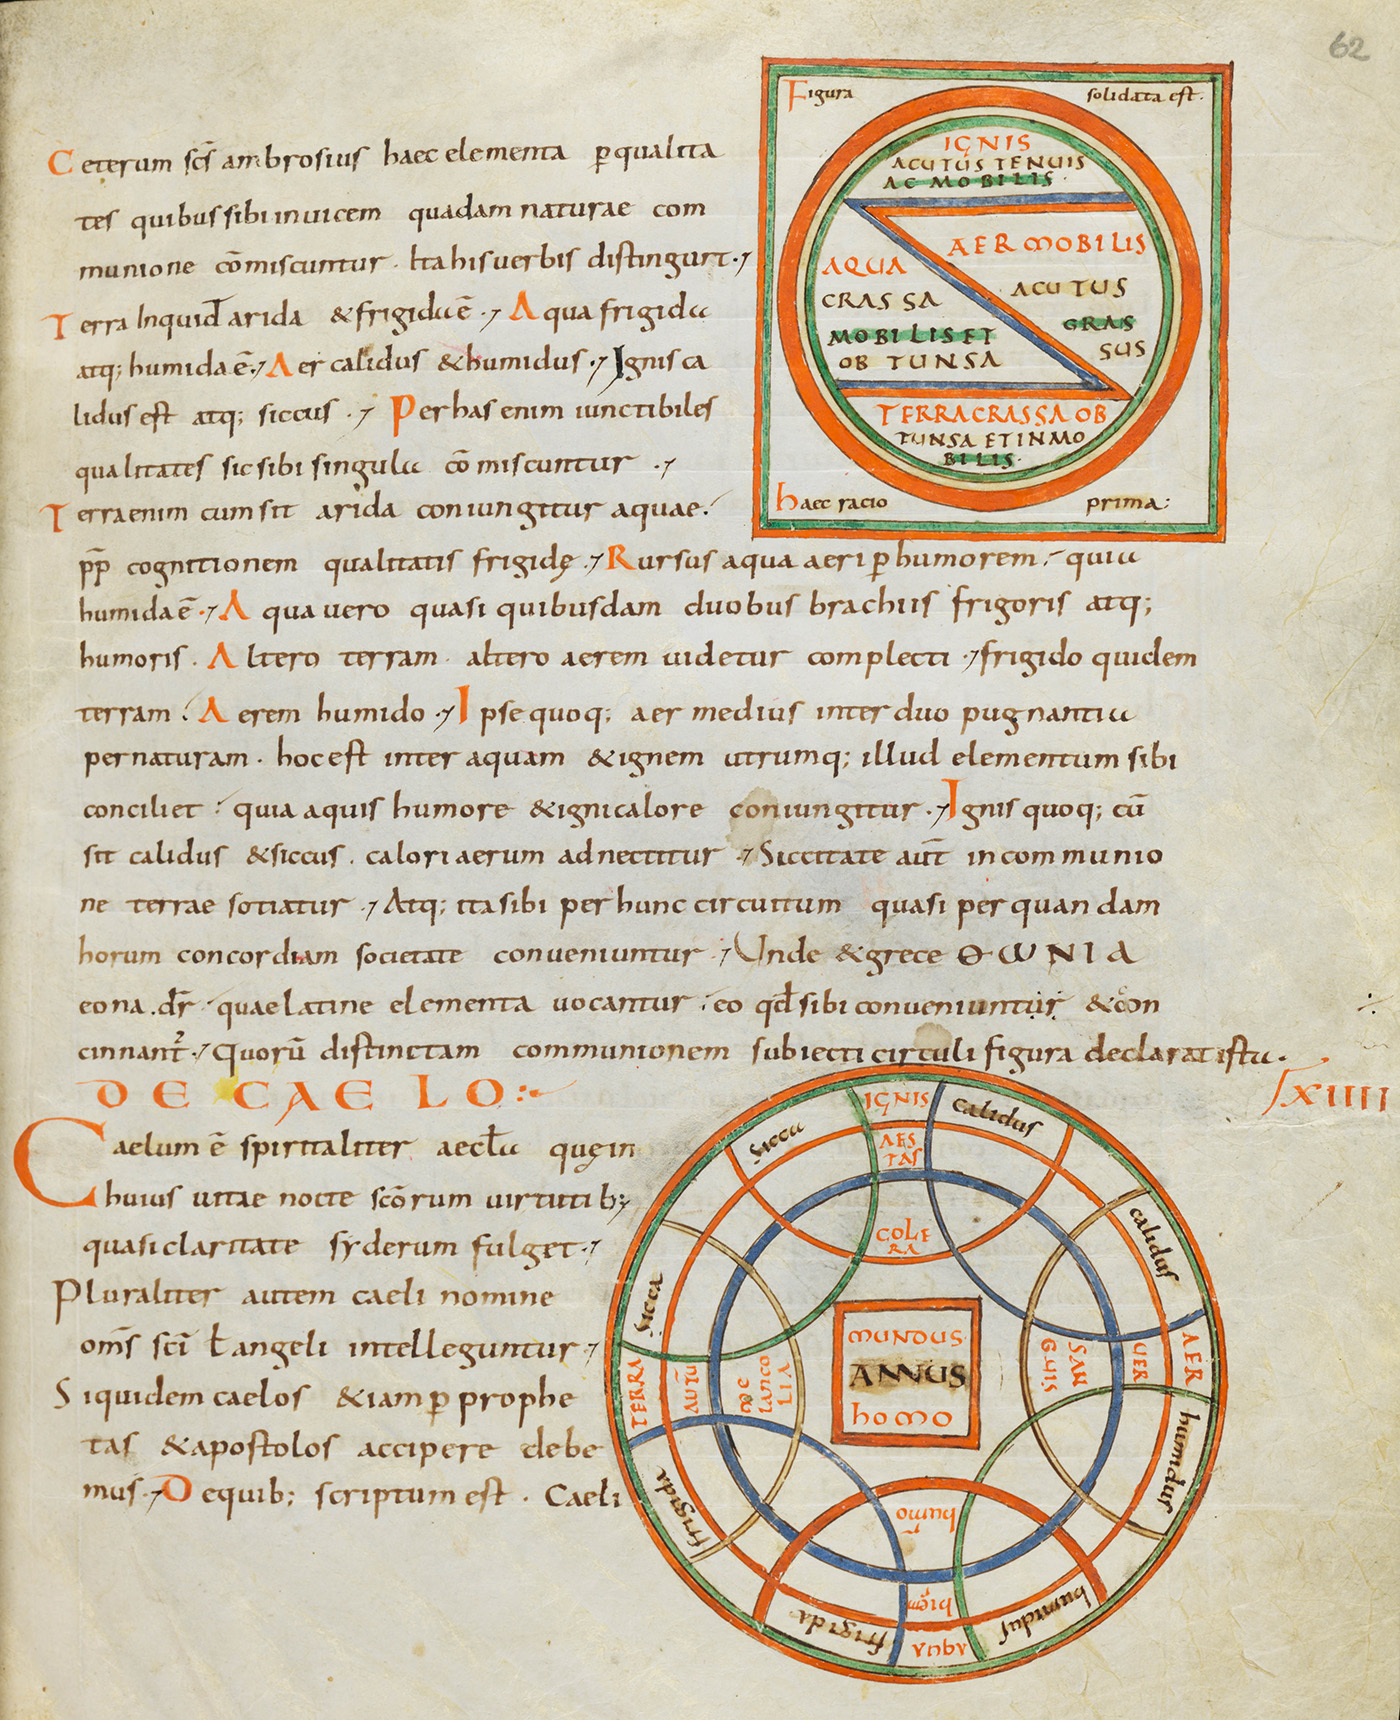 62
Figura solidata est.
IGNIS
ACUTUS TENUIS
AC MOBILIS
AER MOBILIS
ACUTUS
GRAS
SUS
AQUA
CRASSA
MOBILIS ET
OBTUNSA
TERRA CRASSA OB
TUNSA ET INMO
BILIS
haec racio prima:
Ceterum scs̄ ambrosius haec elementa p̱ qualita
tes quibus sibi inuicem quadam naturae com
munione cōmiscuntur. Ita his uerbis distingunt.
Terra Inquid arida & frigida ē. Aqua frigida
atq; humida ē. Aer calidus & humidus. Ignis ca
lidus est atq; siccus. Per has enim iunctibiles
qualitates sic sibi singula cōmiscuntur.
Terra enim cum sit arida coniungitur aquae.
p̱p̱ cognitionem qualitatis frigidę. Rursus aqua aeri p̱ humorem. quia
humida ē. Aqua uero quasi quibusdam duobus brachiis frigoris atq;
humoris. Altero terram. altero aerem uidetur complecti. frigido quidem
terram. Aerem humido. Ipse quoq; aer medius inter duo pugnantia
per naturam. hoc est inter aquam & ignem utrumq; illud elementum sibi
conciliet. quia aquis humore & igni calore coniungitur. Ignis quoq; cū
sit calidus & siccus. calori aerum adnectitur. Siccitate aut̄ in communio
ne terrae sotiatur. Atq; ita sibi per hunc circuitum quasi per quandam
horum concordiam societate conveniuntur. Unde & grece ΘωNIA
eona. dr̄. quae latine elementa vocantur. eo qd̄ sibi conveniuntur & con
cinnant̄. Quorū distinctam communionem subiecti circuli figura declarat ista.
DE CAELO:
Ixiiii
Caelum ē spiritaliter aeclā quę in
huius uitae nocte scōrum uirtutib;
quasi claritate syderum fulget.
Pluraliter autem caeli nomine
om̄s scī ł angeli intelleguntur.
Siquidem caelos & iam p̱ prophe
tas & apostolos accipere debe
mus. De quib; scriptum est. Caeli
IGNIS
calidus
calidus
AER
humidus
humidus
AQUA
frigida
frigida
TERRA
sicca
sicca
AES
TAS
COLE
RA
UER
SAN
GUIS
hiem̄
humo
r
AUTŪ
me
lanco
lia
MUNDUS
ANNUS
homo